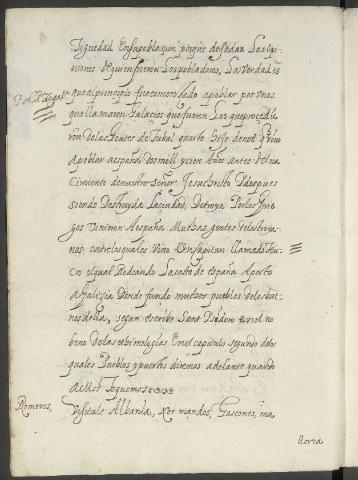 tiguedad En su poblacion, porque dexadas Las opi-
niones de quien fueron Los pobladores, La verdad es
que al principio fue comenzado a poblar por unos
que llamaron Galacios que fueron Los que procedie-
ron de las gentes de tubal quarto hijo de noe q̃ vino
a poblar a españa dos mill y cien años antes del na-
cimiento de nuestro señor Jesuchristo Y despues
siendo Destruyda La ciudad, de troya Por los grie-
gos vinieron A españa Muchas gentes de los troya-
nos entre los quales vino Un capitan llamado teu-
cro el qual Rodeando La costa de españa Aporto
a Galizia Donde fundo muchos pueblos de los bue-
nos della, segun escribe Sant Isidoro en el no
beno de las ethimologias En el capitulo segundo delos
quales Pueblos y puertos diremos adelante quando
a ellos lleguemos
Romeros.
Visitale Albania, Normandos, Gascones, ma
llorca